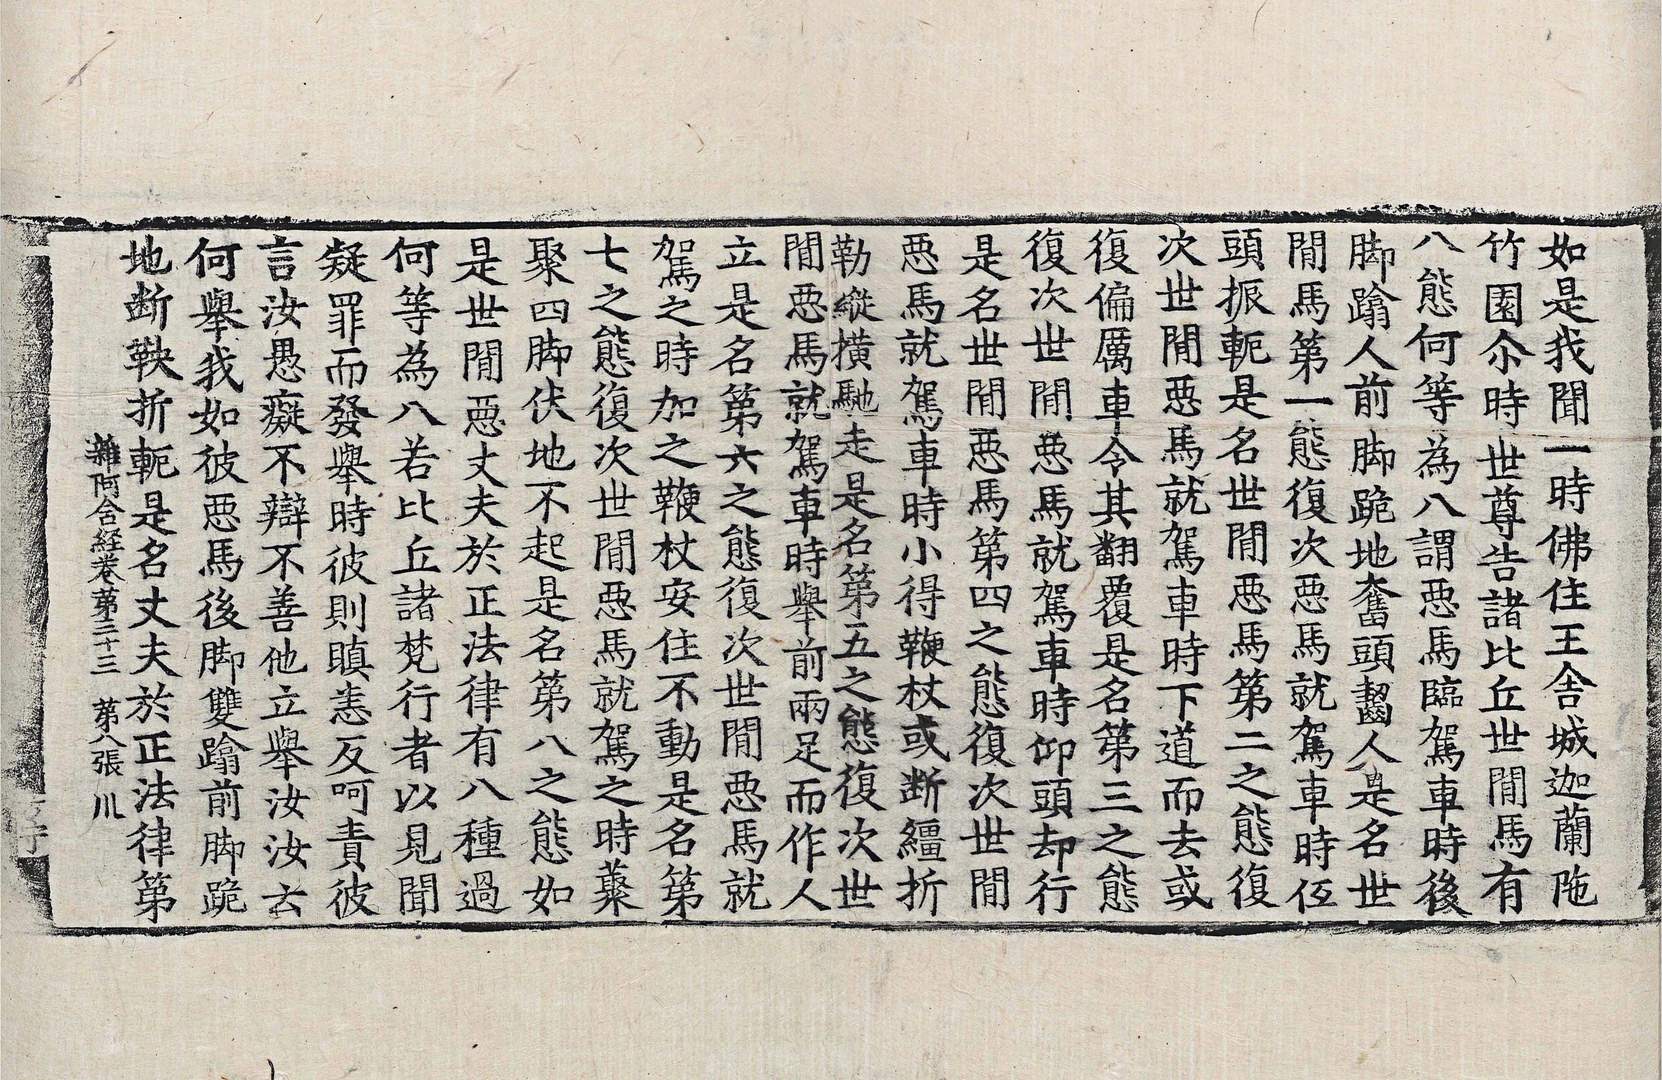 如是我聞一時佛住王舍城迦蘭陁
竹園尒時世尊告諸比丘世閒馬有
八態何等為八謂惡馬臨駕車時後
脚蹹人前脚跪地奮頭齧人是名世
閒馬第一態復次惡馬就駕車時伍
頭振軛是名世閒惡馬第二之態復
次世閒惡馬就駕車時下道而去或
復偏厲車令其翻覆是名第三之態
復次世閒惡馬就駕車時仰頭却行
是名世閒惡馬第四之態復次世閒
惡馬就駕車時小得鞭杖或断韁折
勒縱橫馳走是名第五之態復次世
閒惡馬就駕車時舉前兩足而作人
立是名第六之態復次世閒惡馬就
駕之時加之鞭杖安住不動是名第
七之態復次世閒惡馬就駕之時藂
聚四脚伏地不起是名第八之態如
是世閒惡丈夫於正法律有八種過
何等為八若比丘諸梵行者以見聞
疑罪而發舉時彼則瞋恚反呵責彼
言汝愚癡不辯不善他立舉汝汝云
何舉我如彼惡馬後脚雙蹹前脚跪
地断鞅折軛是名丈夫於正法律第
雜阿含経卷苐三十三 苐八張 川